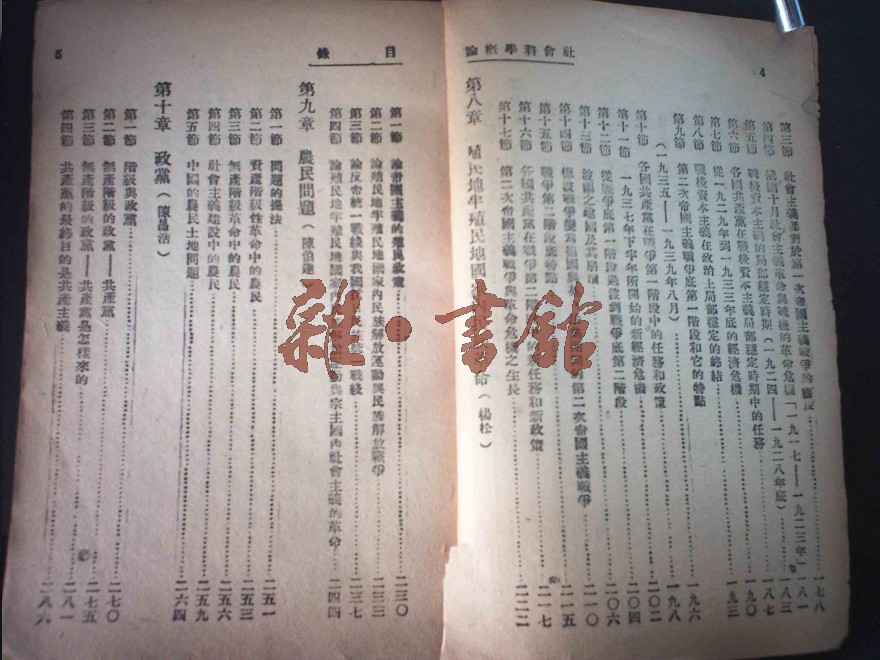 社會科學概論
4
第三節 社會主義者對於第一次帝國主義戰爭的態度 一七八
第四節 俄國十月社會主義革命與戰後的革命危機「一九一七——一九二三年」 一八一
一八三
第五節 戰後資本主義的局部穩定時期（一九二四——一九二八年底） 一八七
第六節 各國共產黨在戰後資本主義局部穩定時期中的任務 一九〇
第七節 戰後資本主義在政治上局部穩定的終結 一九三
第八節 從一九二九年到一九三三年底的經濟危機 一九六
第九節 第二次帝國主義戰爭底第一階段和它的特點
（一九三五——一九三九年八月） 一九八
第十節 各國共產黨在戰爭第一階段中的任務和政策 二〇二
第十一節 一九三七年下半年所開始的新經濟危機 二〇四
第十二節 從戰爭底第一階段過渡到戰爭底第二階段 二〇六
第十三節 波蘭之地國及其崩潰 二一〇
第十四節 德波戰爭變為 第二次帝國主義戰爭 二一五
第十五節 戰爭第二階段底特點 二一七
第十六節 各國共產黨在戰爭第二階段 任務和新政策 二一二
第十七節 第二次帝國主義戰爭與革命危機之生長 二二二
第八章 殖民地半殖民地國家 命（楊松）
目錄
5
第一節 論帝國主義的殖民政策 二三〇
第二節 論殖民地半殖民地國家內民族解放運動與民族解放戰爭 二三七
第三節 論反帝統一戰綫與我國 戰綫
第四節 論殖民地半殖民地國家 動與宗主國內社會主義的革命 二四四
第九章 農民問題（陳伯達
第一節 問題的提法 二五一
第二節 資產階級性革命中的農民 二五三
第三節 無產階級革命中的農民 二五六
第四節 社會主義建設中的農民 二五九
第五節 中國的農民土地問題 二六四
第十章 政黨（陳昌浩）
第一節 階級與政黨 二七〇
第二節 無產階級的政黨——共產黨 二七五
第三節 無產階級的政黨——共產黨是怎樣來的 二八一
第四節 共產黨的最終目的是共產主義 二八六
雜·書舘